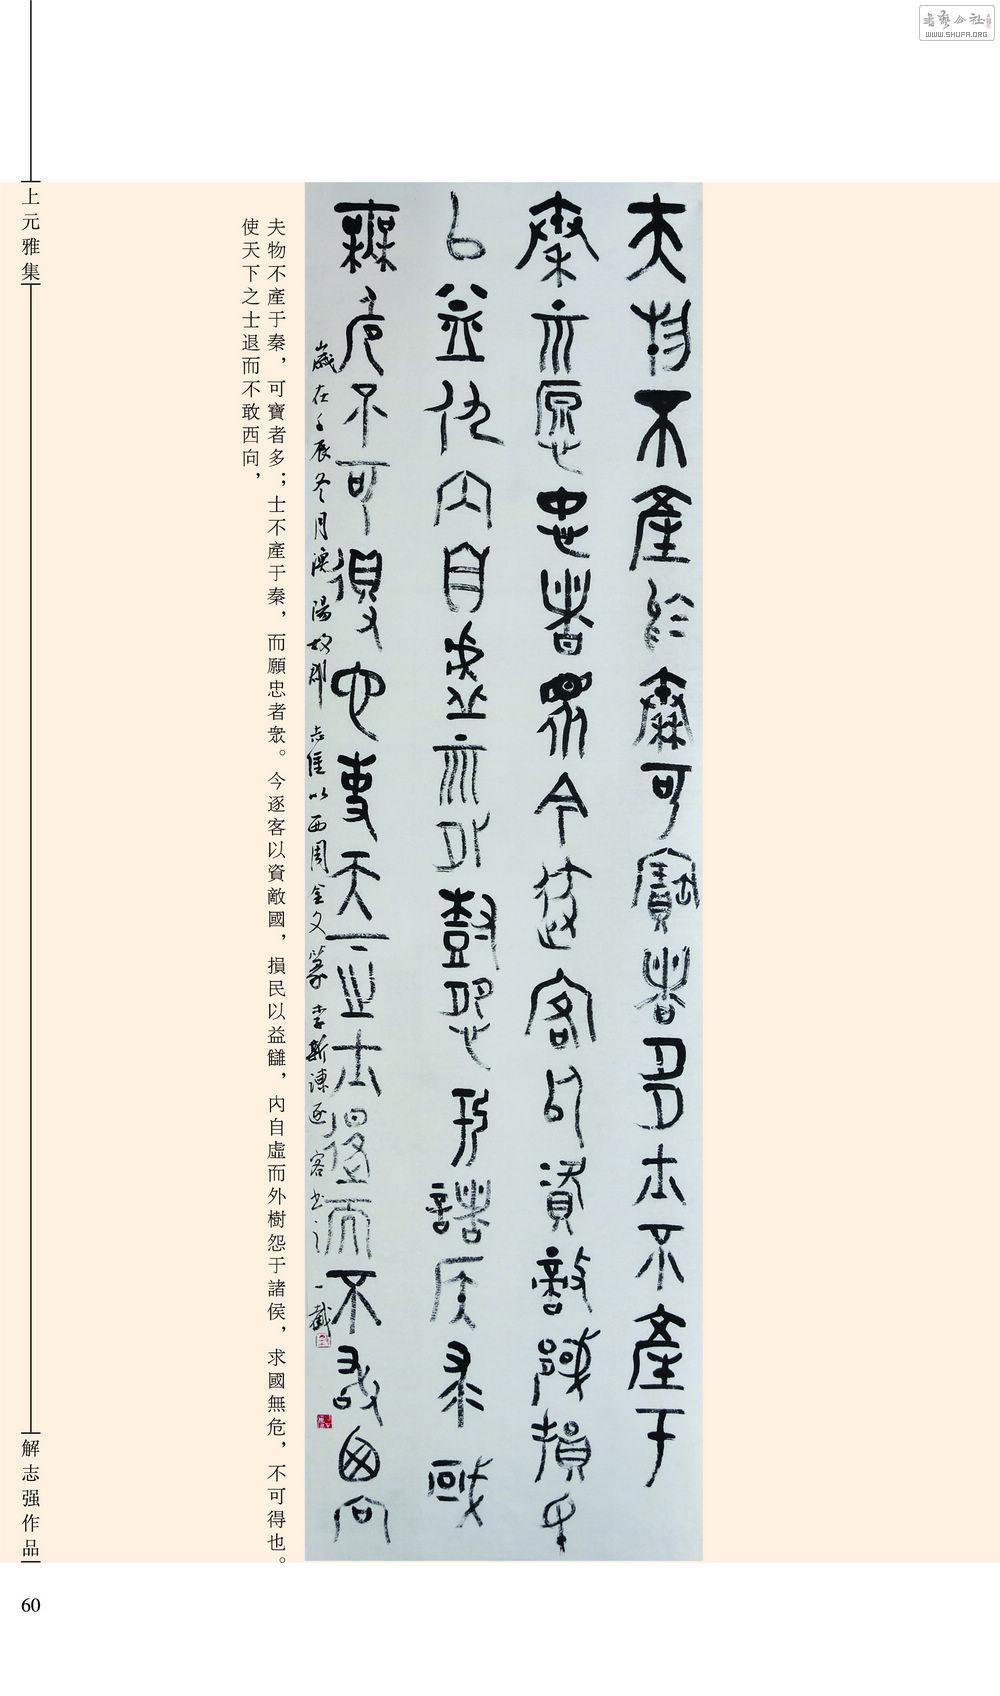 上元雅集
解志强作品
60
夫物不產于秦，可寶者多；士不產于秦，而願忠者衆。今逐客以資敵國，損民以益讎，內自虛而外樹怨于諸侯，求國無危，不可得也。
使天下之士退而不敢西向，
夫物不產於秦可寶者多士不產于
秦而愿忠者眾今逐客以資敵國損民
以益仇內自虛而外樹怨於諸侯求國
無危不可得也使天下之士退而不敢西向
歲在壬辰冬月漁陽故郡志強以西周金文篆李斯諫逐客書之一截
WWW.SHUFA.ORG